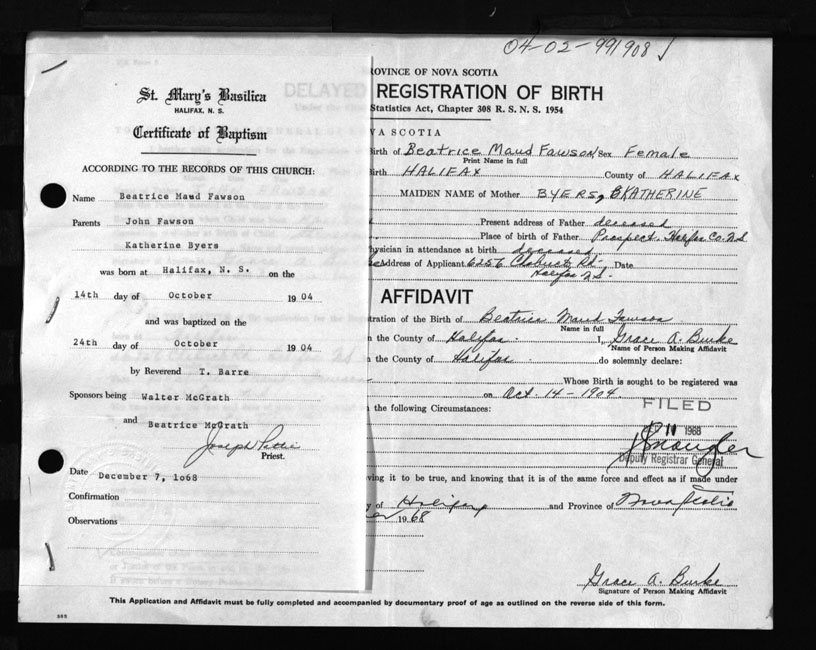 04-02-991908
St. Mary's Basilica
HALIFAX, N. S.
Certificate of Baptism
ACCORDING TO THE RECORDS OF THIS CHURCH:
Name Beatrice Maud Fawson
Parents John Fawson
Katherine Byers
was born at Halifax, N. S. on the
14th day of October 1904
and was baptized on the
24th day of October 1904
by Reverend T. Barre
Sponsors being Walter McGrath
and Beatrice McGrath
Joseph
Priest.
Date December 7, 1o68
Confirmation
Observations
ROVINCE OF NOVA SCOTIA
DELAYED REGISTRATION OF BIRTH
Statistics Act, Chapter 308 R. S. N. S. 1954
VA SCOTIA
Birth of Beatrice Maud Fawson Sex Female
Print Name in full
Birth HALIFAX County of HALIFAX
MAIDEN NAME of Mother BYERS, KATHERINE
Present address of Father deceased
Place of birth of Father Prospect, Halifax Co. N.S.
hysician in attendance at birth deceased
Address of Applicant 6256 Chebucto Rd. Date
Halifax N.S.
AFFIDAVIT
tration of the Birth of Beatrice Maud Fawson
Name in full
n the County of Halifax I, Grace A. Burke
Name of Person Making Affidavit
n the County of Halifax do solemnly declare:
Whose Birth is sought to be registered was
on Oct. 14 - 1904.
FILED
the following Circumstances:
11 1968
Deputy Registrar General
ving it to be true, and knowing that it is of the same force and effect as if made under
y of Halifax and Province of Nova Scotia
1968
Grace A. Burke
Signature of Person Making Affidavit
This Application and Affidavit must be fully completed and accompanied by documentary proof of age as outlined on the reverse side of this form.